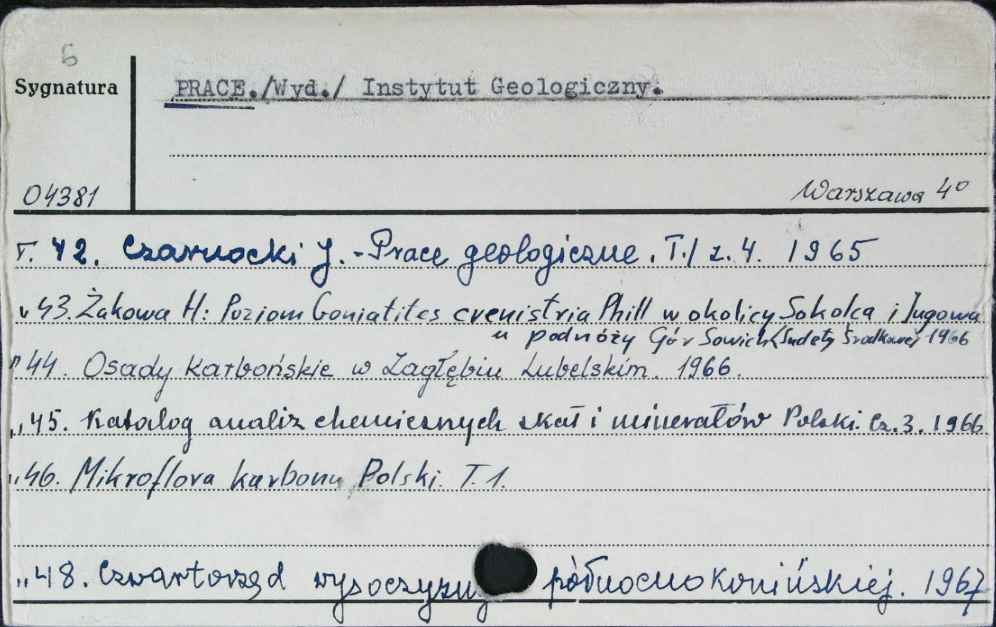 6
Sygnatura
PRACE./Wyd./ Instytut Geologiczny.
04381
Warszawa 4°
T. 42. Czarnocki J. - Prace geologiczne. T.1 z. 4. 1965
„ 43. Żakowa H: Poziom Goniatites crenistria Phill w okolicy Sokolca i Jugowa
u podnóży Gór Sowich (Sudety Środkowe) 1966
„ 44. Osady Karbońskie w Zagłębiu Lubelskim. 1966.
„ 45. Katalog analiz chemicznych skał i minerałów Polski. Cz. 3. 1966.
„ 46. Mikroflora karbonu Polski. T. 1.
„ 48. Czwartorzęd wysoczyzny północnokonińskiej. 1967